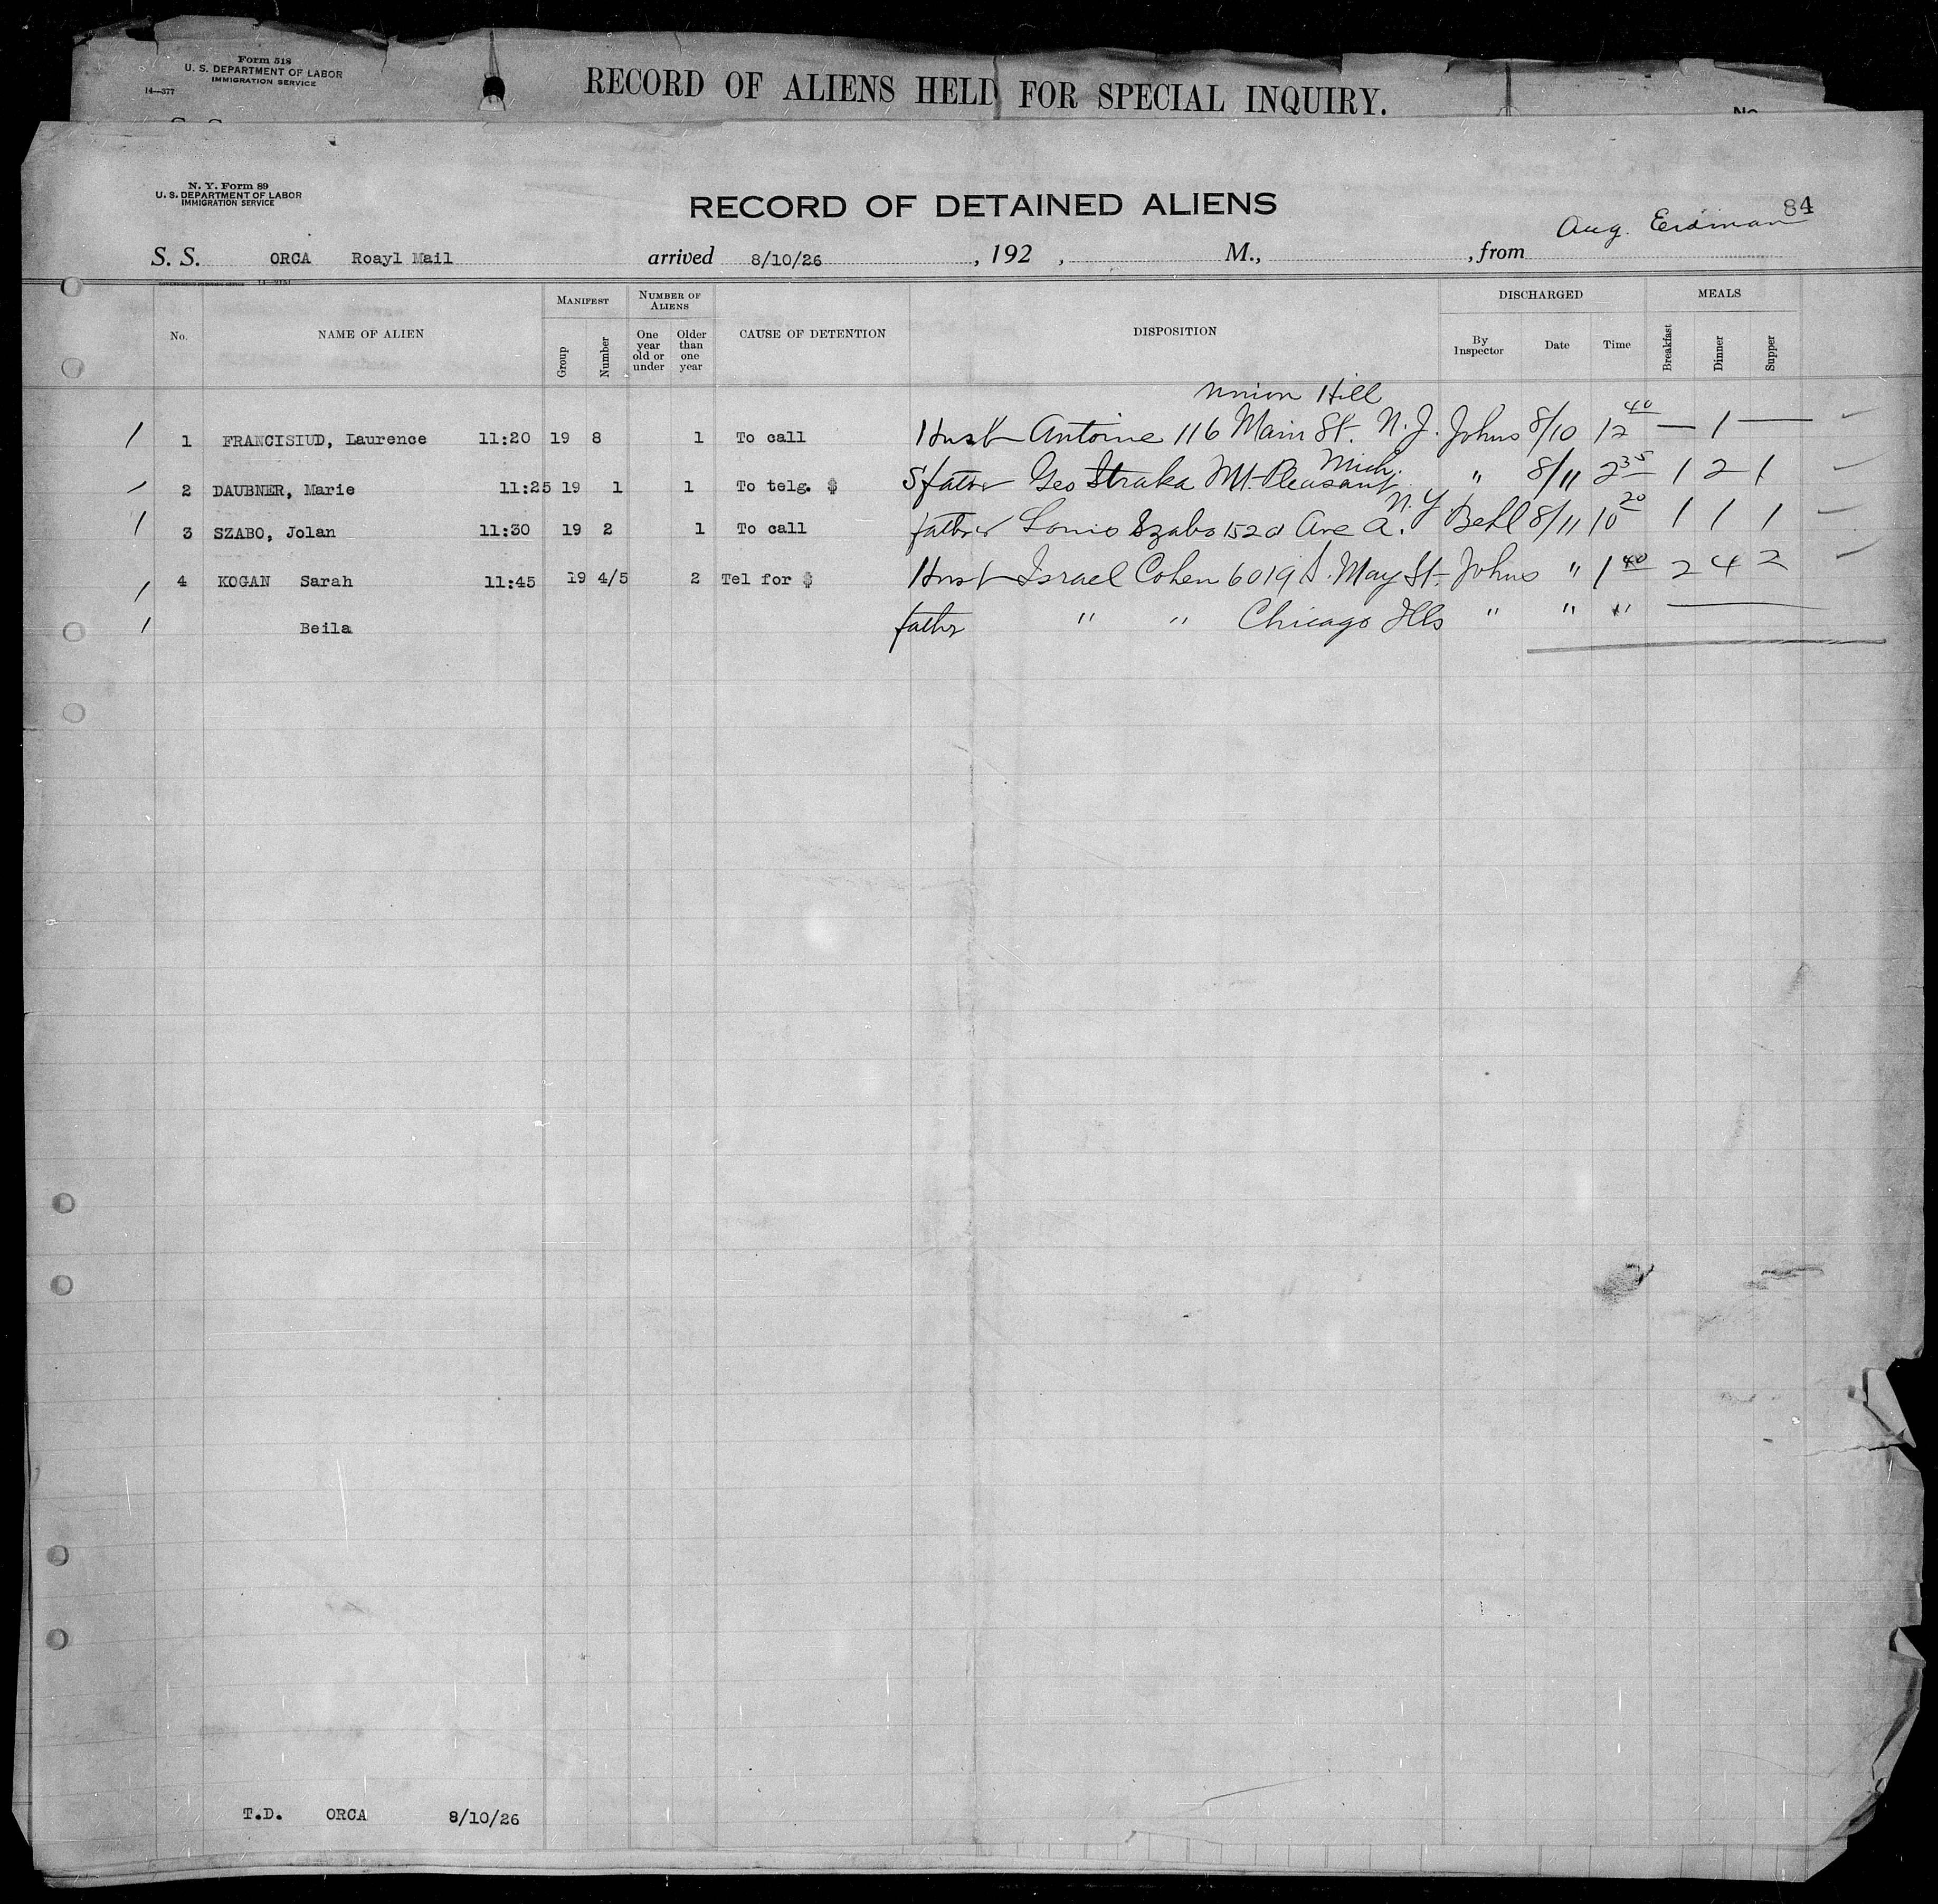 Form 518
U. S. DEPARTMENT OF LABOR
IMMIGRATION SERVICE
14—377
RECORD OF ALIENS HELD FOR SPECIAL INQUIRY.
No
N. Y. Form 89
U. S. DEPARTMENT OF LABOR
IMMIGRATION SERVICE
RECORD OF DETAINED ALIENS
84
Aug. Erdman
S. S. ORCA Roayl Mail arrived 8/10/26, 192 , M., , from
No. NAME OF ALIEN MANIFEST Group Number NUMBER OF ALIENS One year old or under Older than one year CAUSE OF DETENTION DISPOSITION DISCHARGED By Inspector Date Time MEALS Breakfast Dinner Supper
Union Hill
1 1 FRANCISIUD, Laurence 11:20 19 8 1 To call Husb Antoine 116 Main St. N.J. Johns 8/10 12 40 — 1 —
Mich.
/ 2 DAUBNER, Marie 11:25 19 1 1 To telg. $ S father Geo Straka Mt. Pleasant " 8/11 2 35 1 2 1
N.Y
1 3 SZABO, Jolan 11:30 19 2 1 To call father Louis Szabo 1520 Ave A. 8/11 10 20 1 1 1
1 4 KOGAN Sarah 11:45 19 4/5 2 Tel for $ Husb Israel Cohen 6019 S. May St. Johns " 1 40 2 4 2
1 Beila father " " Chicago Ills " " "
T.D. ORCA 8/10/26